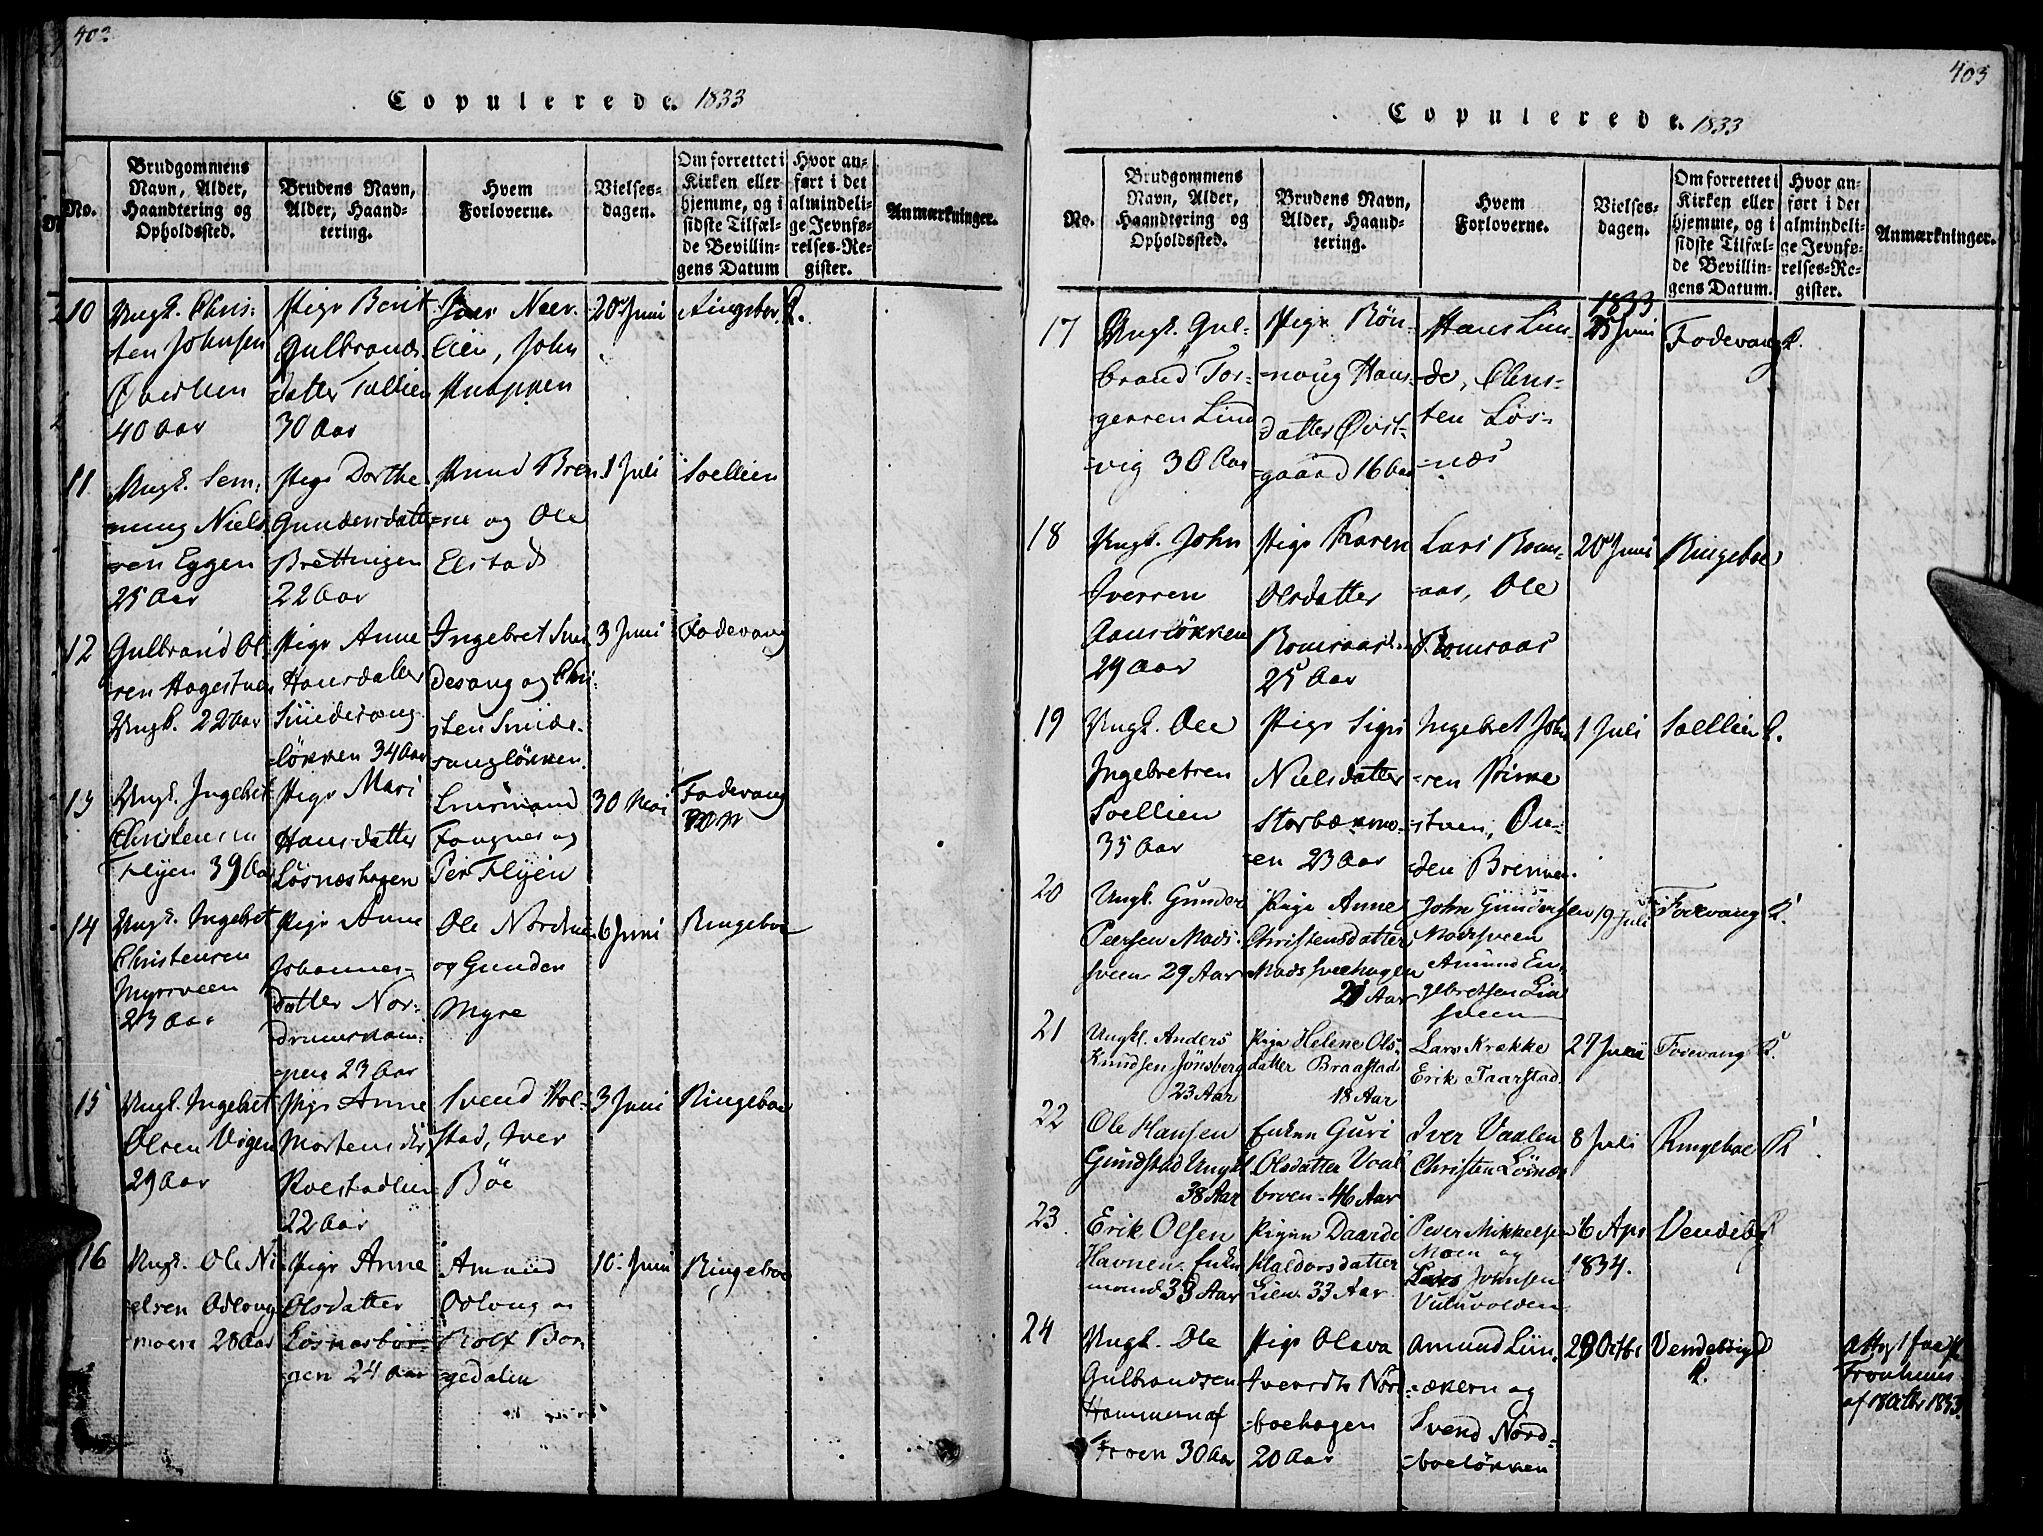 402
Copulerede. 1833
No.
Brudgommens Navn, Alder, Haandtering og Opholdssted.
Brudens Navn, Alder, Haandtering.
Hvem Forloverne.
Vielsesdagen.
Om forrettet i Kirken eller hjemme, og i sidste Tilfælde Bevillingens Datum
Hvor anført i det almindelige Jevnførelses-Register.
Anmærkninger.
10
Ungk. Chris-
ten Johnsen
40 Aar
Pige Berit
Gulbrands
datter
30 Aar
John
20de Juni
11
Ungk. Sem-
ming Niels
sen Eggen
25 Aar
Pige Dorthe
Gundersdatt
Brettingen
22 Aar
Amund Bren
ne og Ole
Elstad
1 Juli
Soellien
12
Gulbrand Ol
sen Hagestuen
Ungk. 22 Aar
Pige Anne
Hansdatter
løkken 34 Aar
Ingebret
og Chri-
sten
3 Juni
Fodevang
13
Ungk. Ingebret
Christensen
Flyen 39 Aar
Pige Mari
Hansdatter
Løsneshagen
Fougner og
Per Flyen
30 Mai
Fodevang
14
Ungk. Ingebret
Christensen
Myrsveen
23 Aar
Pige Anne
Johannes-
datter Nor-
pen 23 Aar
Ole
og Gunder
Myre
6 Juni
Ringeboe
15
Ungk. Ingebret
Olsen
29 Aar
Pige Anne
Mortensdtr
Kolstadlien
22 Aar
Svend Kol-
stad, Iver
Bøe
3 Juni
Ringeboe
16
Ungk. Ole Ni
elsen Odloug
moen 28 Aar
Pige Anne
Olsdatter
gen 24 Aar
Amund
Odloug og
Rolf Bon
gedalen
10 Juni
Ringeboe
403
Copulerede. 1833
No.
Brudgommens Navn, Alder, Haandtering og Opholdssted.
Brudens Navn, Alder, Haandtering.
Hvem Forloverne.
Vielsesdagen.
Om forrettet i Kirken eller hjemme, og i sidste Tilfælde Bevillingens Datum.
Hvor anført i det almindelige Jevnførelses-Register.
Anmærkninger.
1833
17
Ungk. Gul-
brand Tor-
gersen Lund
vig 30 Aar
Pige Røn-
noug Hans-
datter Øvst-
gaard 16 Aar
Hans Lun-
de, Chris-
ten Løs-
næs
25 Juni
Fodevang K.
18
Ungk. John
Iversen
Aausløkken
29 Aar
Pige Karen
Olsdatter
25 Aar
Lars Roms-
aas, Ole
Romsaas
20de Juni
Ringeboe
19
Ungk. Ole
Ingebretsen
Soellien
35 Aar
Pige Sigri
Nielsdatter
en 23 Aar
Ingebret John
sen
stuen,
den Brennen.
1 Juli
Soellien K.
20
Ungk. Gunder
Peersen Mads-
sveen 29 Aar
Pige Anne
Christensdatter
Madssveehagen
21 Aar
John Gundersen
Madssveen
Amund En-
gebretsen Lie
sveen
19 Juli
Fodevang K.
21
Ungk. Anders
Knudsen Jønsberg
23 Aar
Pige Helene Ols-
datter Braastad
18 Aar
Lars Krække
Erik Taarstad
27 Juni
Fodevang K.
22
Ole Hansen
Gundstad Ungk.
38 Aar
Enken Guri
Olsdatter Vaal
broen 46 Aar
Iver Vaalen
Christen Løsnæs
8 Juli
Ringeboe K.
23
Erik Olsen
Havnen Enke
mand 33 Aar
Pigen Daarde
Haldorsdatter
Lien 33 Aar
Peder Mikkelsen
Moen og
Lars Johnsen
Vuluvolden
6 Apr
1834.
Vendeby K
24
Ungk. Ole
Gulbrandsen
Hammern af
Froen 30 Aar
Pige Olava
Iversdtr Nord-
boehagen
20 Aar
Amund Lun-
økern og
Svend Nord-
boeløkken
29 Octbr
K.
af 18 Octbr 1833